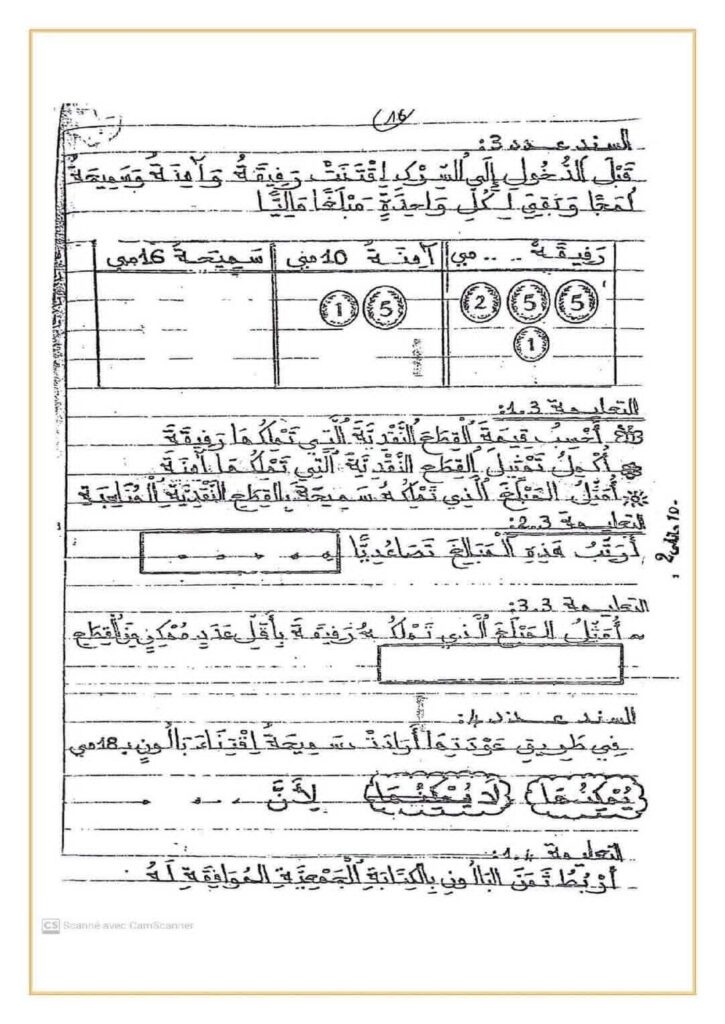 16
السند عـدد 3:
قَبْلَ الدُّخُولِ إِلَى السِّرْكِ اِقْتَنَتْ رَفِيقَةُ وَآمِنَةُ وَسَمِيحَةُ
لُمَجًا وَبَقِيَ لِكُلِّ وَاحِدَةٍ مَبْلَغًا مَالِيًّا
رَفِيقَةُ .... مي آمِنَةُ 10 مي سَمِيحَةُ 16 مي
5 5 2 5 1
1
التعليمة 1.3:
أَحْسِبُ قِيمَةَ الْقِطَعِ النَّقْدِيَّةِ الَّتِي تَمْلِكُهَا رَفِيقَةُ
أُكْمِلُ تَمْثِيلَ الْقِطَعِ النَّقْدِيَّةِ الَّتِي تَمْلِكُهَا آمِنَةُ
أُمَثِّلُ الْمَبْلَغَ الَّذِي تَمْلِكُهُ سَمِيحَةُ بِالْقِطَعِ النَّقْدِيَّةِ الْمُنَاسِبَةِ
التعليمة 2.3:
أُرَتِّبُ هَذِهِ الْمَبَالِغَ تَصَاعُدِيًّا
التعليمة 3.3:
أُمَثِّلُ الْمَبْلَغَ الَّذِي تَمْلِكُهُ رَفِيقَةُ بِأَقَلِّ عَدَدٍ مُمْكِنٍ مِنَ الْقِطَعِ
السند عـدد 4:
فِي طَرِيقِ عَوْدَتِهَا أَرَادَتْ سَمِيحَةُ اِقْتِنَاءَ بَالُونٍ بـ 18 مي
يُمْكِنُهَا لَا يُمْكِنُهَا لِأَنَّ ....
التعليمة 1.4:
أَرْبُطُ ثَمَنَ الْبَالُونِ بِالْكِتَابَةِ الْجَمْعِيَّةِ الْمُوَافِقَةِ لَهُ
CS Scanné avec CamScanner